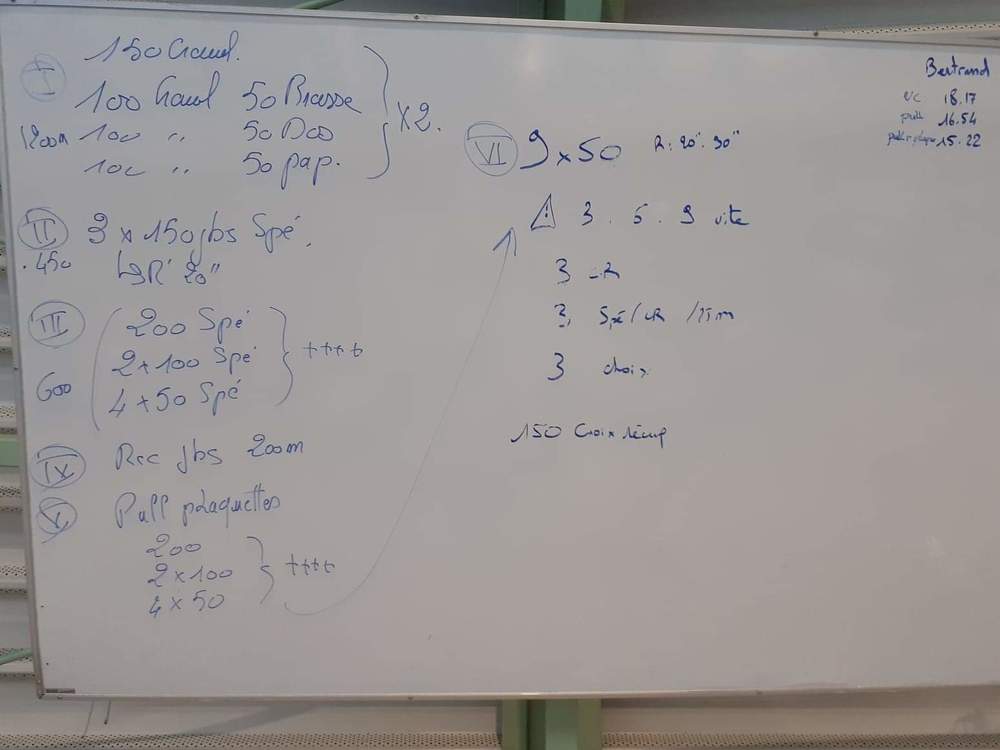 I
150 Crawl.
100 Crawl 50 Brasse
1200m 100 " 50 Dos
100 " 50 pap.
X2.
II 3 x 150 jbs Spé.
.450 ↳R' 20"
III
200 Spé
2x100 Spé
600 4x50 Spé
++++
IX Rec jbs 200m
V Pull plaquettes
200
2x100
4x50
++++
VI 9x50 R: 20". 30"
3 . 5 . 9 vite
3 CR
3. Spé/CR /25m
3 choix
150 Choix récup
Bertrand
NC 18.17
pull 16.54
pull+plaque 15.22